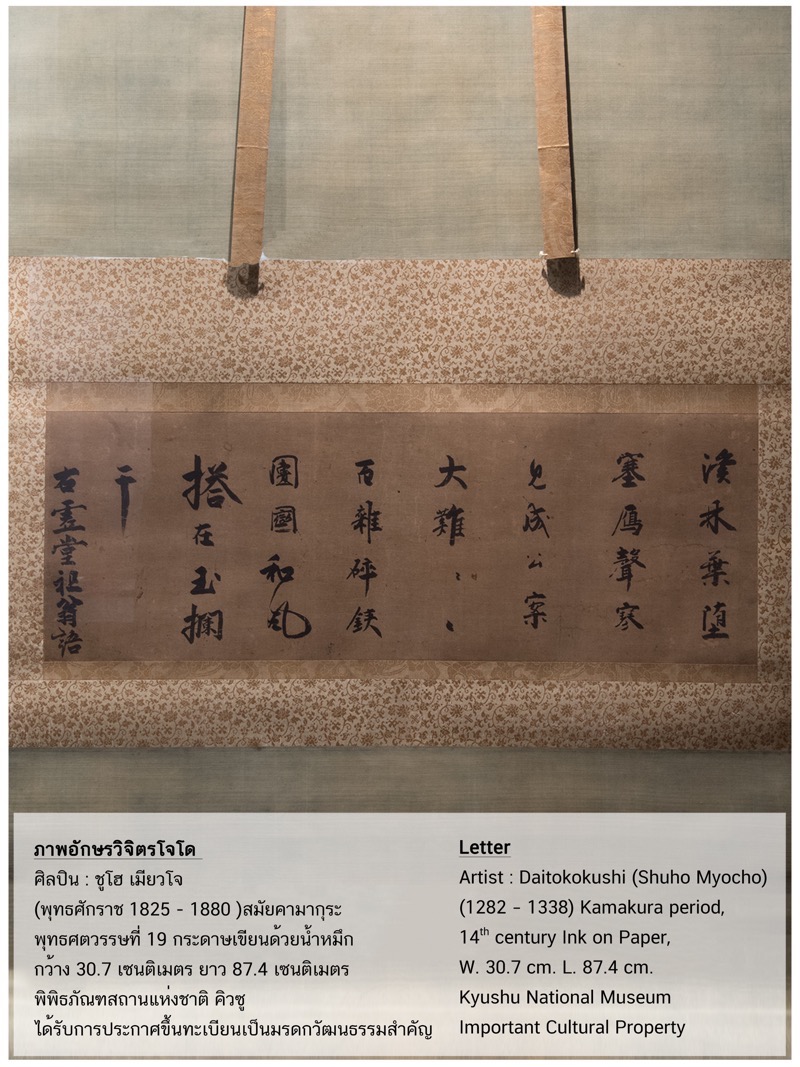 溪林葉堕
塞鴈聲寒
見成公案
大難〻〻
百雜碎鉄
團圞和風
搭在玉欄
干
右虚堂祖翁語
ภาพอักษรวิจิตรโจโด
ศิลปิน : ชูโฮ เมียวโจ
(พุทธศักราช 1825 - 1880 )สมัยคามากุระ
พุทธศตวรรษที่ 19 กระดาษเขียนด้วยน้ำหมึก
กว้าง 30.7 เซนติเมตร ยาว 87.4 เซนติเมตร
พิพิธภัณฑสถานแห่งชาติ คิวชู
ได้รับการประกาศขึ้นทะเบียนเป็นมรดกวัฒนธรรมสำคัญ
Letter
Artist : Daitokokushi (Shuho Myocho)
(1282 – 1338) Kamakura period,
14th century Ink on Paper,
W. 30.7 cm. L. 87.4 cm.
Kyushu National Museum
Important Cultural Property